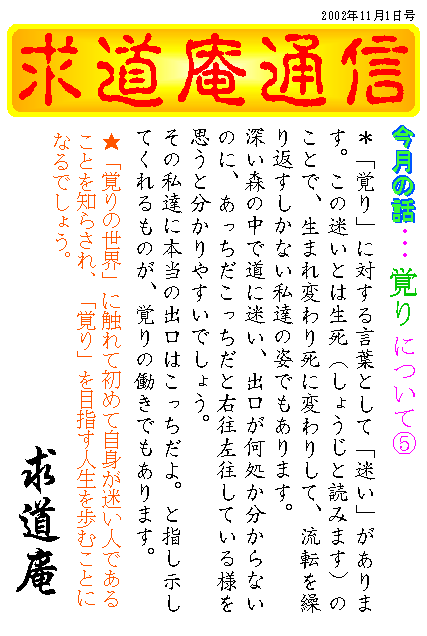 2002年11月1日号
求道庵通信
今月の話・・・覚りについて⑤
＊「覚り」に対する言葉として「迷い」がありま
す。この迷いとは生死（しょうじと読みます）の
ことで、生まれ変わり死に変わりして、流転を繰
り返すしかない私達の姿でもあります。
深い森の中で道に迷い、出口が何処か分からない
のに、あっちだこっちだと右往左往している様を
思うと分かりやすいでしょう。
その私達に本当の出口はこっちだよ。と指し示し
てくれるものが、覚りの働きでもあります。
★「覚りの世界」に触れて初めて自身が迷い人である
ことを知らされ、「覚り」を目指す人生を歩むことに
なるでしょう。
求道庵